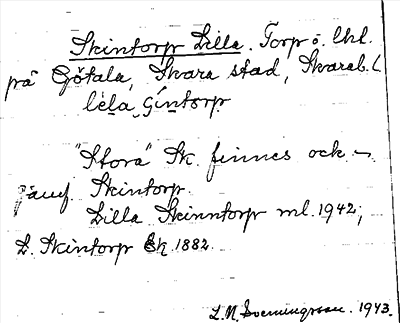 Skintorp Lilla. Torp ö. lhl.
på Götala, Skara stad, Skarab. l
lela Gintorp
"Stora" Sk. finnes ock. -
jämf. Skintorp.
Lilla Skinntorp ml. 1942;
L. Skintorp Ek 1882.
L. M. Svenungsson. 1943.